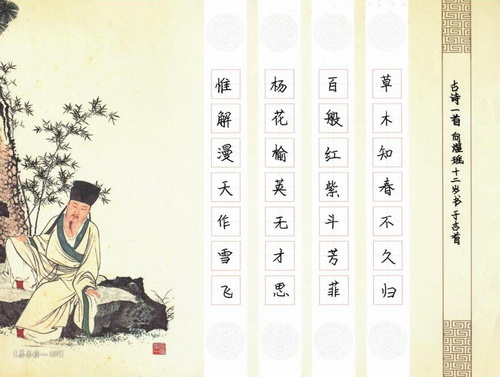 古诗一首 十二岁书于吉首
草木知春不久归
百般红紫斗芳菲
杨花榆英无才思
惟解漫天作雪飞